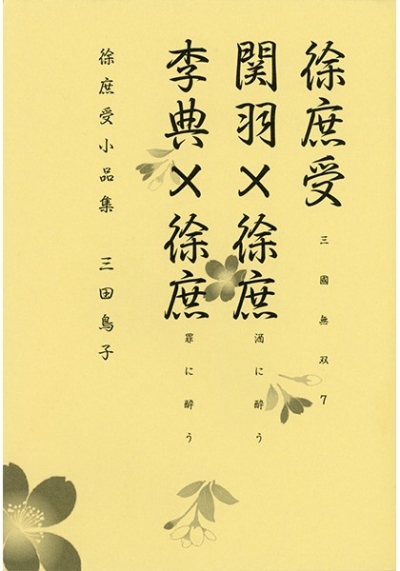 徐庶受
三國無双7
関羽×徐庶
酒に酔う
李典×徐庶
罪に酔う
徐庶受小品集 三田鳥子